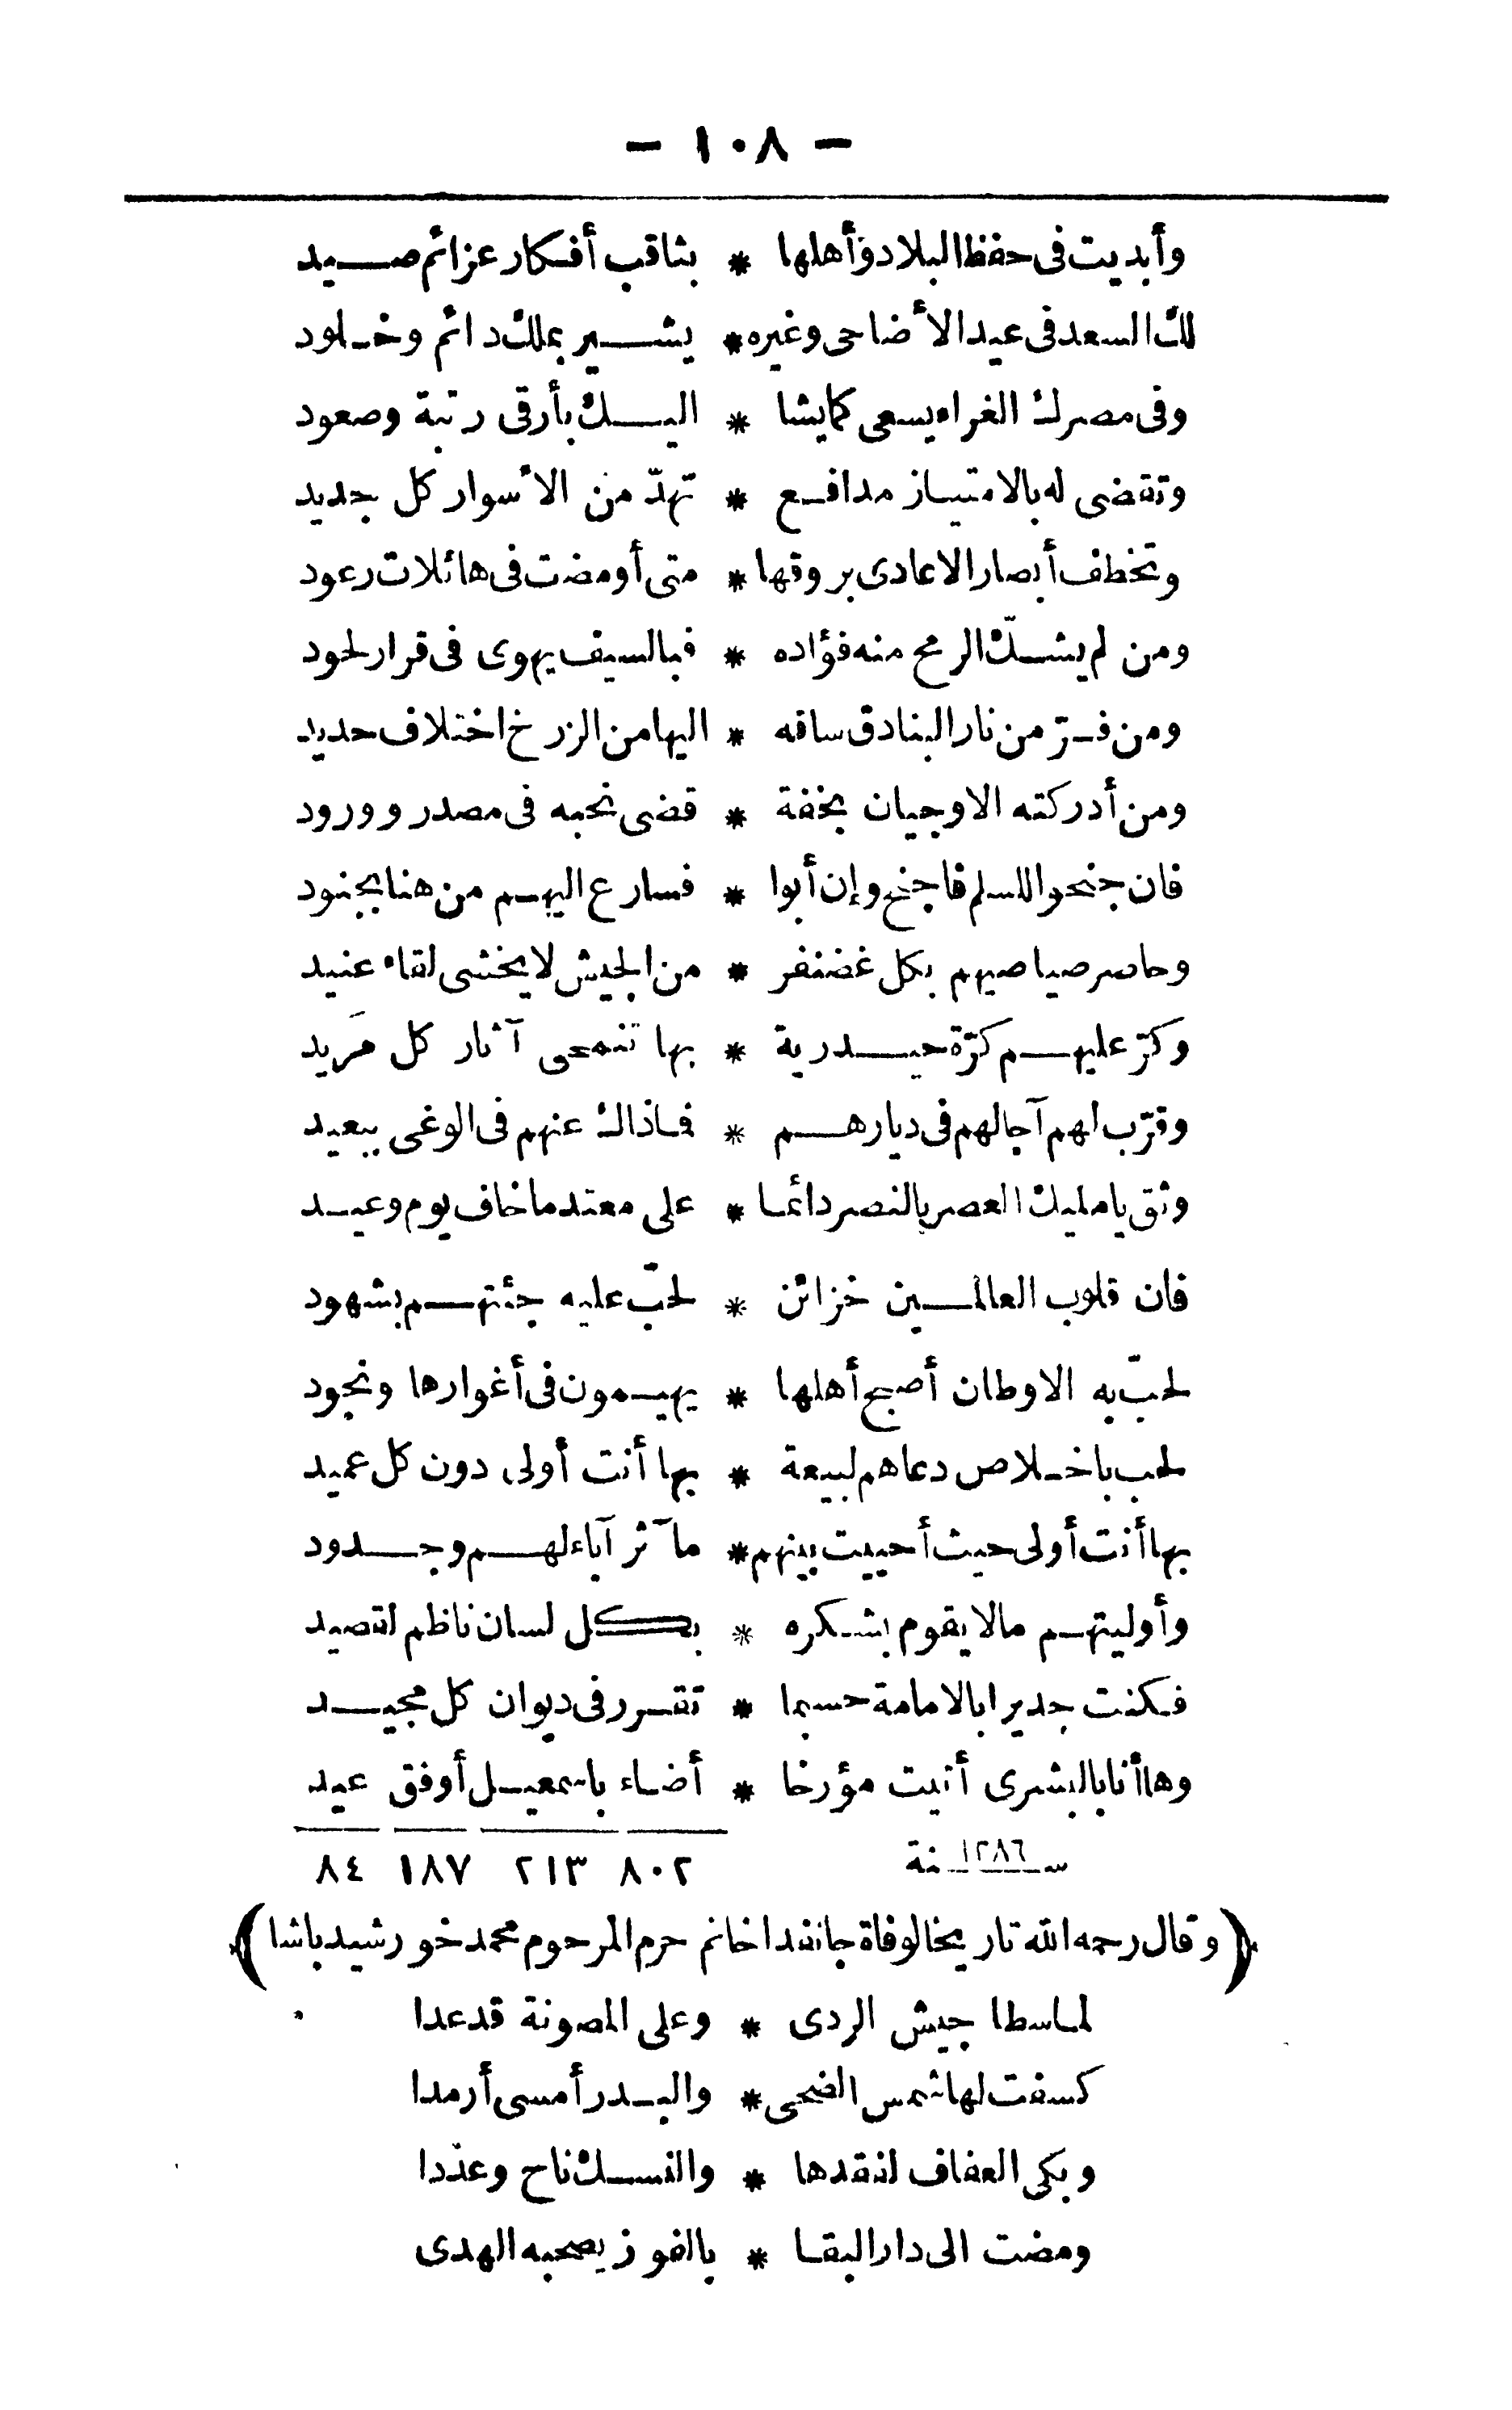 — ١٠٨ —
وأبديت فى حفظ البلاد وأهلها * بثاقب أفكار عزائم صيد
لك السعد فى عيد الأضاحى وغيره * يشير بملك دائم وخلود
وفى مصرك الغراء يسعى كما يشا * اليك بأرقى رتبة وصعود
وتقضى له بالامتياز مدافع * تهدّ من الأسوار كل جديد
وتخطف أبصار الاعادى بروقها * متى أومضت فى هائلات رعود
ومن لم يشكّ الرمح منه فؤاده * فبالسيف يهوى فى قرار لحود
ومن فرّ من نار البنادق ساقه * اليها من الزرخ اختلاف حديد
ومن أدركته الاوجيان بخفة * قضى نحبه فى مصدر وورود
فان جنحوا للسلم فاجنح وإن أبوا * فسارع اليهم من هنا بجنود
وحاصر صياصيهم بكل غضنفر * من الجيش لا يخشى لقاء عنيد
وكرّ عليهم كرّة حيدرية * بها تنمحى آثار كل مَريد
وقرّب لهم آجالهم فى ديارهم * فما ذاك عنهم فى الوغى ببعيد
وثق يا مليك العصر بالنصر دائما * على معتد ما خاف يوم وعيد
فان قلوب العالمين خزائن * لحبّ عليه جئتهم بشهود
لحبّ به الاوطان أصبح أهلها * يهيمون فى أغوارها ونجود
لحب باخلاص دعاهم لبيعة * بها أنت أولى دون كل عميد
بها أنت أولى حيث أحييت بينهم * مآثر آباء لهم وجدود
وأوليتهم ما لا يقوم بشكره * بكل لسان ناظم لقصيد
فكنت جديرا بالامامة حسبما * تقرر فى ديوان كل مجيد
وها أنا بالبشرى أتيت مؤرخا * أضاء باسمعيل أوفق عيد
سنة ١٢٨٦ ٨٠٢ ٢١٣ ١٨٧ ٨٤
﴿وقال رحمه الله تاريخا لوفاة جانفدا خانم حرم المرحوم محمد خورشيد باشا﴾
لما سطا جيش الردى * وعلى المصونة قد عدا
كسفت لها شمس الضحى * والبدر أمسى أرمدا
وبكى العفاف لفقدها * والنسك ناح وعدّدا
ومضت الى دار البقا * بالفوز يصحبه الهدى